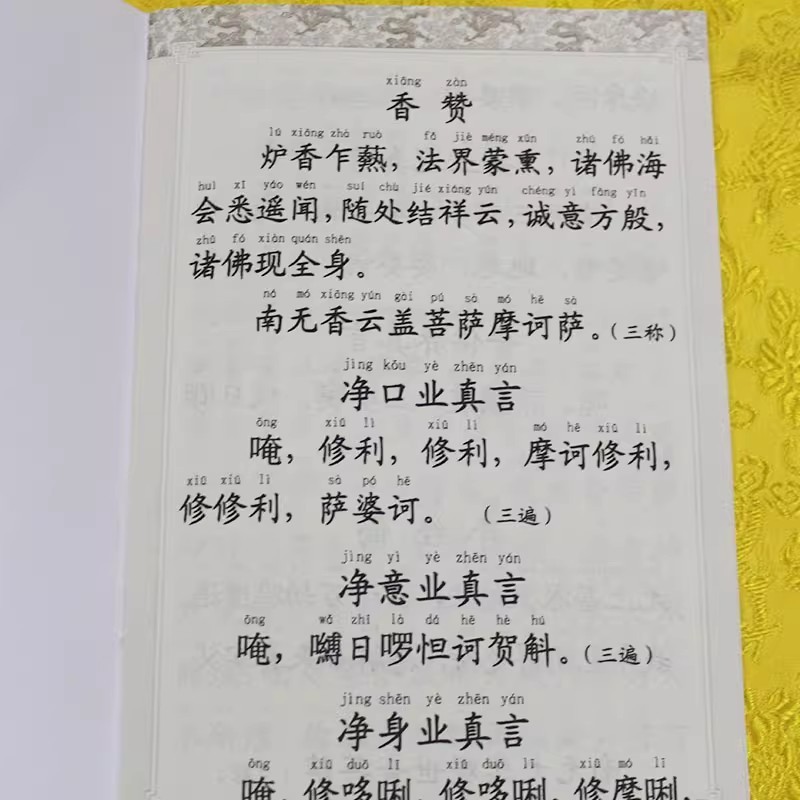 xiāng zàn
香赞
lú xiāng zhà ruò fǎ jiè méng xūn zhū fó hǎi
炉香乍爇，法界蒙熏，诸佛海
huì xī yáo wén suí chù jié xiáng yún chéng yì fāng yīn
会悉遥闻，随处结祥云，诚意方殷，
zhū fó xiàn quán shēn
诸佛现全身。
ná mó xiāng yún gài pú sà mó hē sà
南无香云盖菩萨摩诃萨。（三称）
jìng kǒu yè zhēn yán
净口业真言
ōng xiū lì xiū lì mó hē xiū lì
唵，修利，修利，摩诃修利，
xiū xiū lì sà pó hē
修修利，萨婆诃。（三遍）
jìng yì yè zhēn yán
净意业真言
ōng wā zhī là dá hē hè hú
唵，嚩日啰怛诃贺斛。（三遍）
jìng shēn yè zhēn yán
净身业真言
ōng xiū duō lī xiū duō lī xiū mó lī
唵，修哆唎，修哆唎，修摩唎，